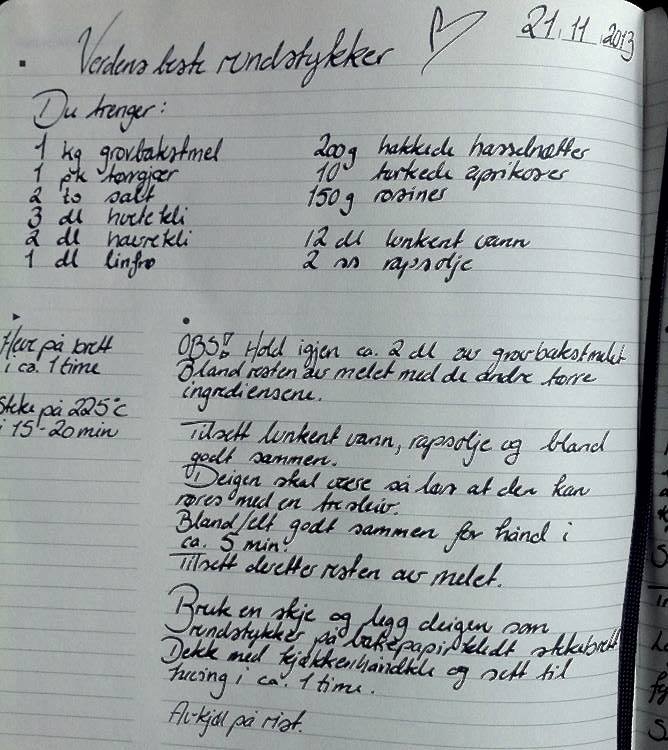 21.11.2013
Verdens beste rundstykker
Du trenger:
1 kg grovbakstmel
1 pk tørrgjær
2 ts salt
3 dl hvetekli
2 dl havrekli
1 dl linfrø
200g hakkede hasselnøtter
10 tørkede aprikoser
150g rosiner
12 dl lunkent vann
2 ss rapsolje
Heve på brett
i ca. 1 time
Steke på 225°C
i 15-20 min
OBS! Hold igjen ca. 2 dl av grovbakstmelet
Bland resten av melet med de andre tørre
ingrediensene.
Tilsett lunkent vann, rapsolje og bland
godt sammen.
Deigen skal være så løs at den kan
røres med en tresleiv.
Bland/elt godt sammen for hånd i
ca. 5 min.
Tilsett deretter resten av melet.
Bruk en skje og legg deigen som
rundstykker på bakepapirkledt stekebrett
Dekk med kjøkkenhåndkle og sett til
heving i ca. 1 time.
Avkjøl på rist.